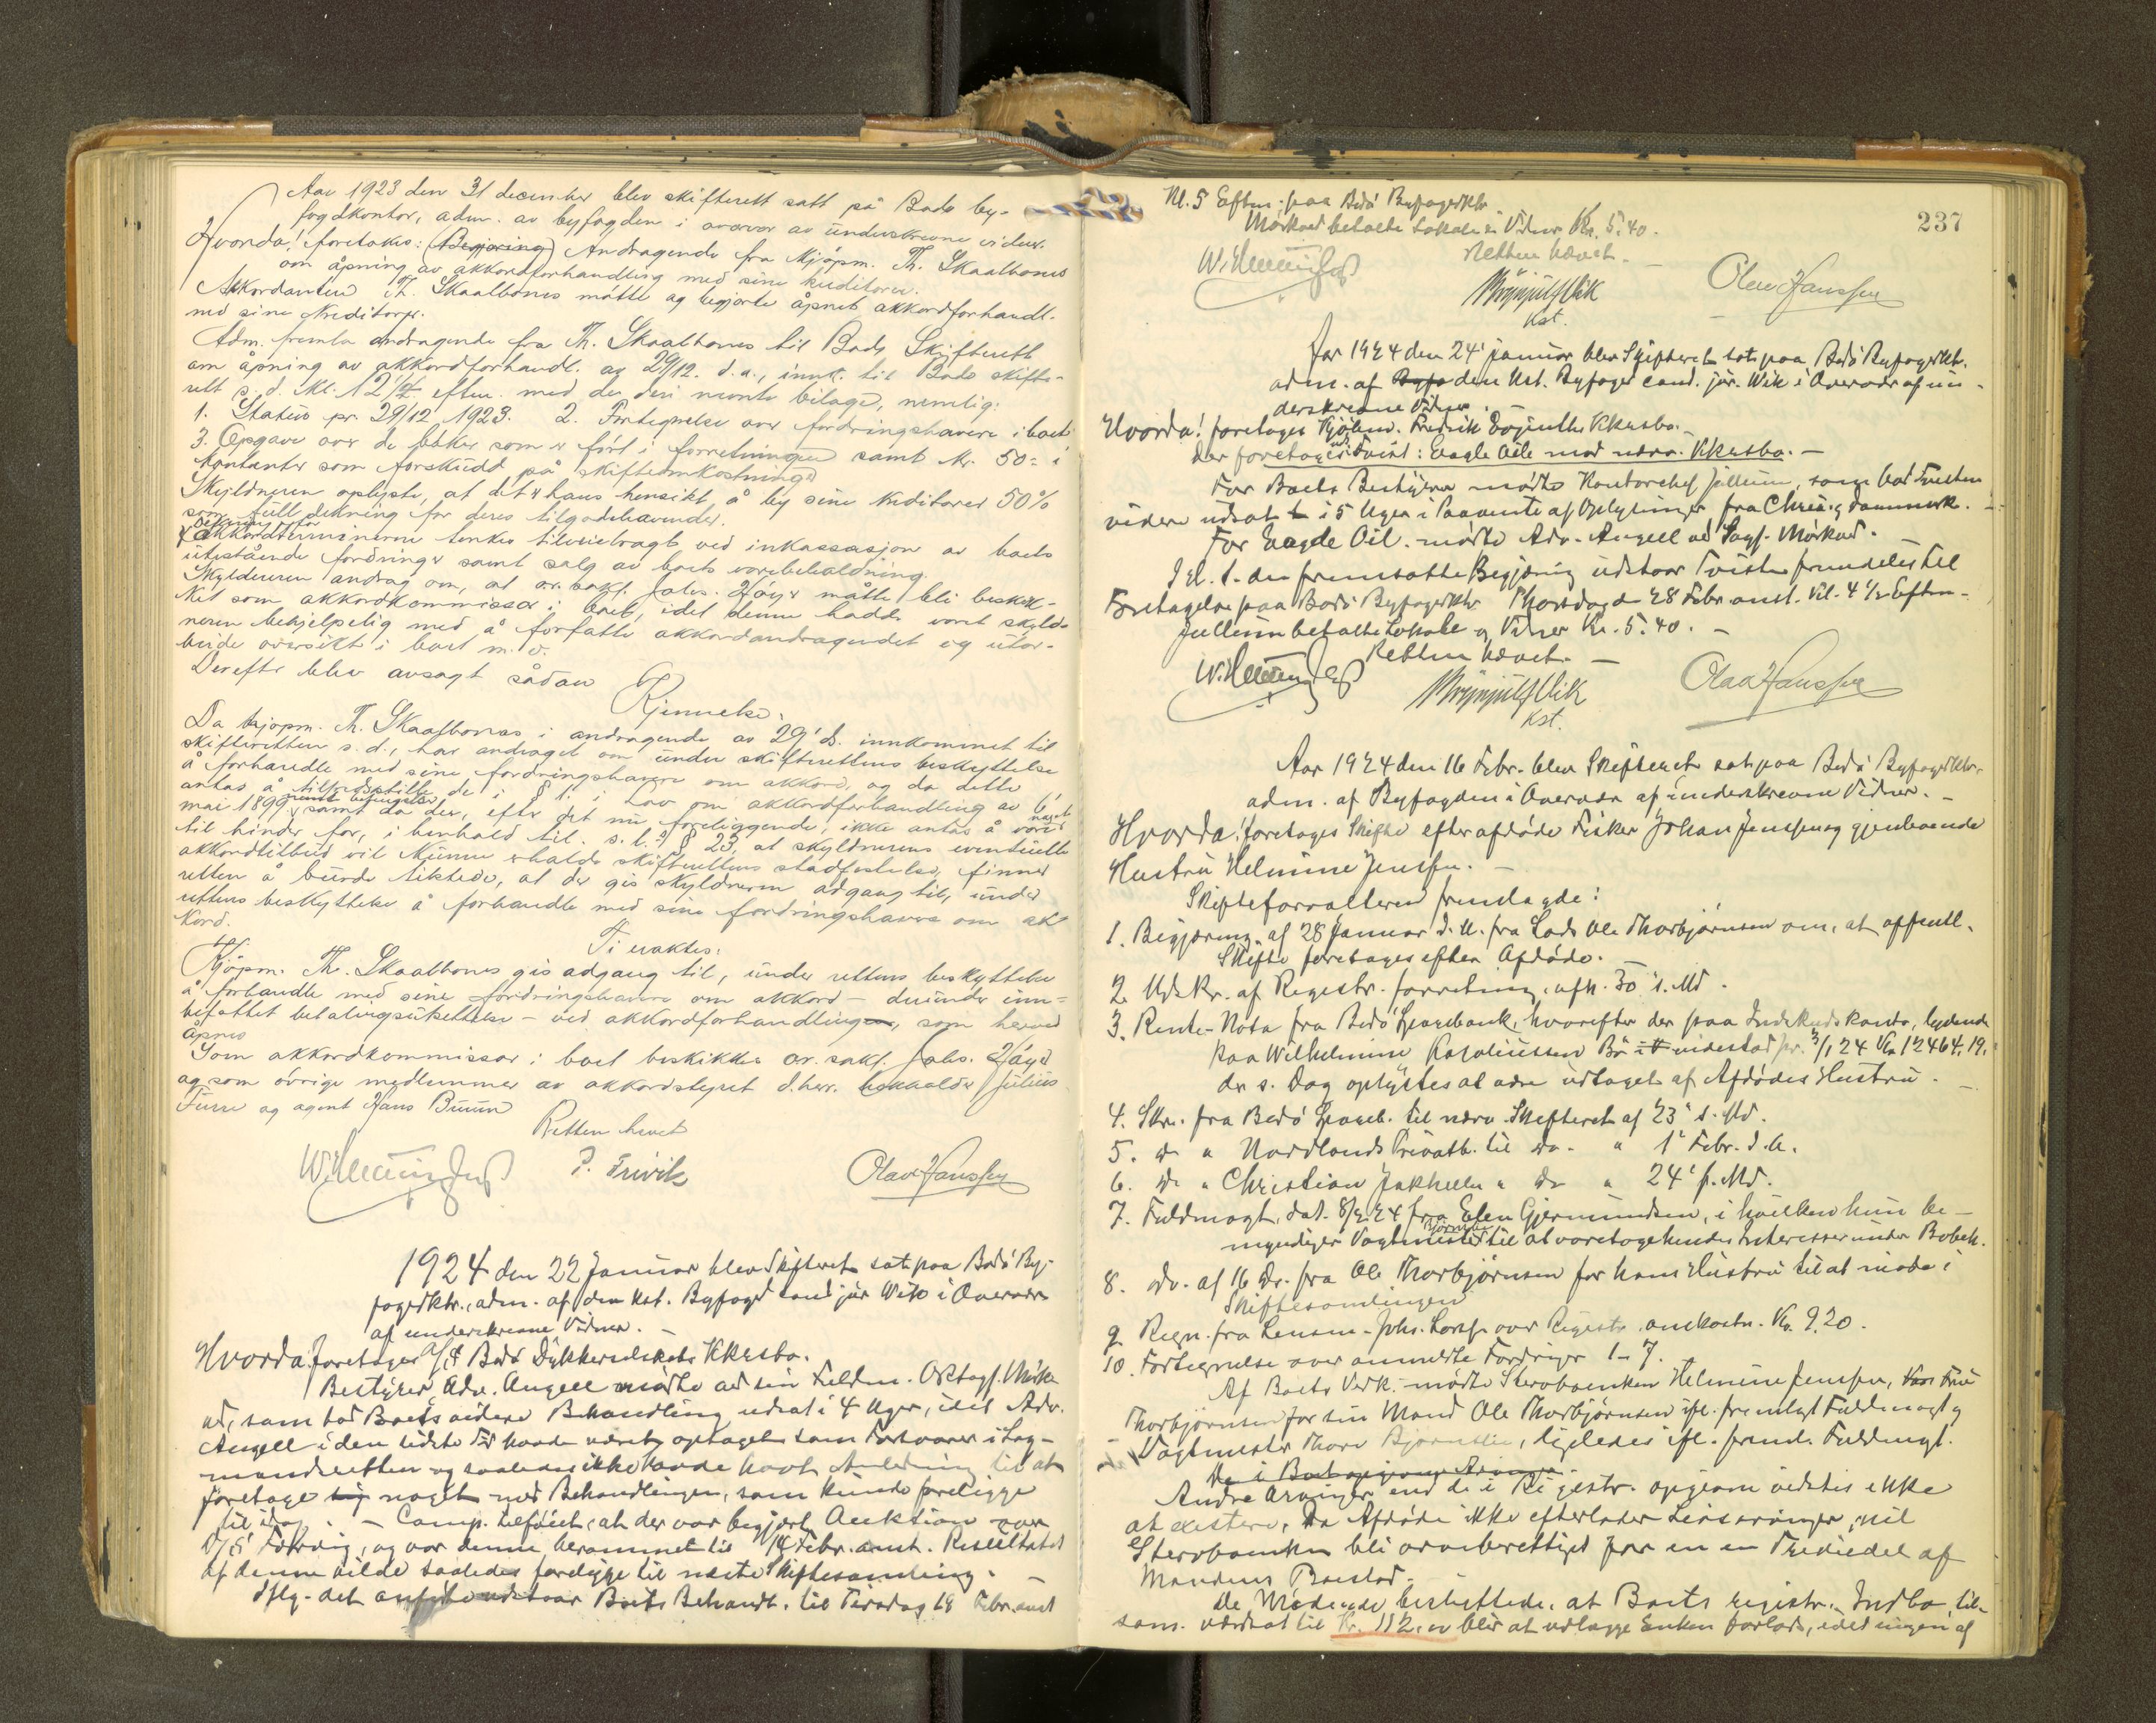 Aar 1923 den 31 december blev skifterett satt på Bodø by-
fogdkontor, adm. av byfogden i overvær av underskrevne vidner.
Hvorda! foretokes: (Begjæring) Andragende fra Kjøpm. Th. Skaalbones
om åpning av akkordforhandling med sine kreditorer.
Akkordanten Th. Skaalbones møtte og begjærte åpnet akkordforhandl.
med sine kreditorer.
Adm. fremla andragende fra Th. Skaalbones til Bodø Skifterett
om åpning av akkordforhandl. av 29/12. d.a., innk. til Bodø skifte-
rett s.d. kl. 12 1/2 efterm. med de deri nevnte bilage, nemlig:
1. Status pr. 29/12 1923. 2. Fortegnelse over fordringshavere i boet
3. Opgave over de bøker som er ført i forretningen samt kr. 50:- i
kontanter som forskudd på skifteomkostninger
Skyldneren oplyste, at det er hans hensikt, å by sine kreditorer 50%
som full dekning for deres tilgodehavender.
Dekning for
Akkordterminerne tenkes tilveiebragt ved inkassasjon av boets
utestående fordringer samt salg av boets varebeholdning.
Skyldneren andrag om, at or. sakf. Johs. Høyer måtte bli beskik-
ket som akkordkommissær i boet, idet denne hadde vært skyld-
neren behjelpelig med å forfatte akkordandragendet og utar-
beide oversikt i boet m.v.
Derefter blev avsagt sådan
Kjennelse.
Da kjøpm. Th. Skaalbones i andragende av 29' ds. innkommet til
skifteretten s.d., har andraget om under skifterettens beskyttelse
å forhandle med sine fordringshavere om akkord, og da dette
antas å tilfredsstille de i § 1 i Lov om akkordforhandling av 6'
mai 1899 nevnte betingelser, samt da der, efter det nu foreliggende, ikke antas å være noget
til hinder for, i henhold til s.l.'s § 23, at skyldnerens eventuelle
akkordtilbud vil kunne erholde skifterettens stadfestelse, finner
retten å burde tilstede, at der gis skyldneren adgang til, under
rettens beskyttelse å forhandle med sine fordringshavere om ak-
kord.
Ti eraktes:
Kjøpm. Th. Skaalbones gis adgang til, under rettens beskyttelse
å forhandle med sine fordringshavere om akkord - derunder inn-
befattet betalingsutsettelse - ved akkordforhandling, som herved
åpnes
Som akkordkommissær i boet beskikkes or. sakf. Johs. Høyer
og som øvrige medlemmer av akkordstyret d.herr. Julius
Furre og agent Hans Buum
Retten hevet
P. Trivik
Olav Hanssen
1924 den 22 Januar blev Skifteret sat paa Bodø By-
fogedktr., adm. af den kst. Byfoged cand. jur Wik i Overvær
af underskrevne Vidner.
Hvorda! foretoges A/S Bodø Dykkerselskabs Kkrsbo.
Bestyrer, Adv. Angell mødte ved sin Fuldm. Mørke-
ved, som bad Boets videre Behandling udsat i 4 Uger, idet Adv.
Angell i den sidste Tid havde været optaget som Forsvarer i Lag-
mandsretten og saaledes ikke havde havt Anledning til at
foretage noget med Behandlingen, som kunde foreligge
til idag. - Comp. tilføiet, at der var begjært Auktion over
Fordring, og var denne berammet til 14 Febr. anst. Resultatet
af denne vilde saaledes foreligge til næste Skiftesamling. -
Iflg. det anførte udstaar Boets Behandl. til Tirsdag 19 Febr. anst
237
Kl. 5 Eftm. paa Bodø Byfogedktr
Mørkved betalte Lokale & Vidner Kr. 5.40.
Retten hævet. -
Brynjulf Wik
Kst.
Olav Hanssen
Aar 1924 den 24' Januar blev Skifteret sat paa Bodø Byfogedktr.
adm. af den kst. Byfoged cand. jur. Wik i Overvær af un-
derskrevne Vidner.
Hvorda! foretoges Kjøbm. Fredrik Kkrsbo. -
der foretoges Tvist: Eagle Oile mod nævn. Kkrsbo. -
For Boets Bestyrer mødte Kontorchef Jullum, som bad Tvisten
videre udsat i 5 Uger i Paavente af Oplysninger fra Chria og Danmark.
For Eagle Oil. mødte Adv. Angell ved Sagf. Mørkved.
I H. t. den fremsatte Begjæring udstaar Tvisten fremdeles til
Foretagelse paa Bodø Byfogedktr Thorsdag d 28 Febr anst. Kl. 4 1/2 Eftm -
Jullum betalte Lokale og Vidner Kr. 5.40. -
Retten hævet. -
Brynjulf Wik
Kst.
Olav Hanssen
Aar 1924 den 16 Febr. blev Skifteret sat paa Bodø Byfogedktr.
adm. af Byfogden i Overvær af underskrevne Vidner. -
Hvorda! foretoges Skifte efter afdøde Fisker Johan Jenssen og gjenlevende
Hustru Helmine Jenssen. -
Skifteforvalteren fremlagde:
1. Begjæring af 28 Januar d.A. fra Lods Ole Thorbjørnsen om, at offentl.
Skifte foretages efter Afdøde. -
2. Udskr. af Registr. forretning, afh. 30' s. Md.
3. Rente-Nota fra Bodø Sparebank, hvorefter der paa Indskudskonto, lydende
paa Wilhelmine indestod pr. 3/1 24 Kr. 12464.19,
der s. Dag oplystes at være udtaget af Afdødes Hustru. -
4. Skr. fra Bodø Spareb. til nærv. Skifteret af 23' s. Md.
5. do " Nordlands Privatb. til do. " 1' Febr. d.A.
6. do " Christian Jakhelln " do " 24' f. Md.
7. Fuldmagt, dat. 8/2 24 fra Elen Gjermundsen, i hvilken hun be-
myndiger Vagtmester Bjørnslie til at varetage hendes Interesser under Bobeh.
8. Do. af 16 Dr. fra Ole Thorbjørnsen for hans Hustru til at møde i
Skiftesamlingen
9 Regn. fra Lensm. Johs. over Registr. omkostn. Kr. 9.20.
10. Fortegnelse over anmeldte Fordringer 1-7.
Af Boets Vedk. mødte Stervboenken Helmine Jenssen, Fru
Thorbjørnsen for sin Mand Ole Thorbjørnsen ifl. fremlagt Fuldmagt og
Vagtmester Thore Bjørnslie, ligeledes ifl. freml. Fuldmgt.
Andre Arvinger end de i Registr. opgivne vidstes ikke
at existere. Da Afdøde ikke efterlader Livsarvinger, vil
Stervboenken bli arveberettiget for en Trediedel af
Mandens Boeslod.
De Mødende besluttede, at Boets registr. Indbo, til-
sam. værdsat til Kr. 112,00 blir at udlægge Enken forlods, idet ingen af